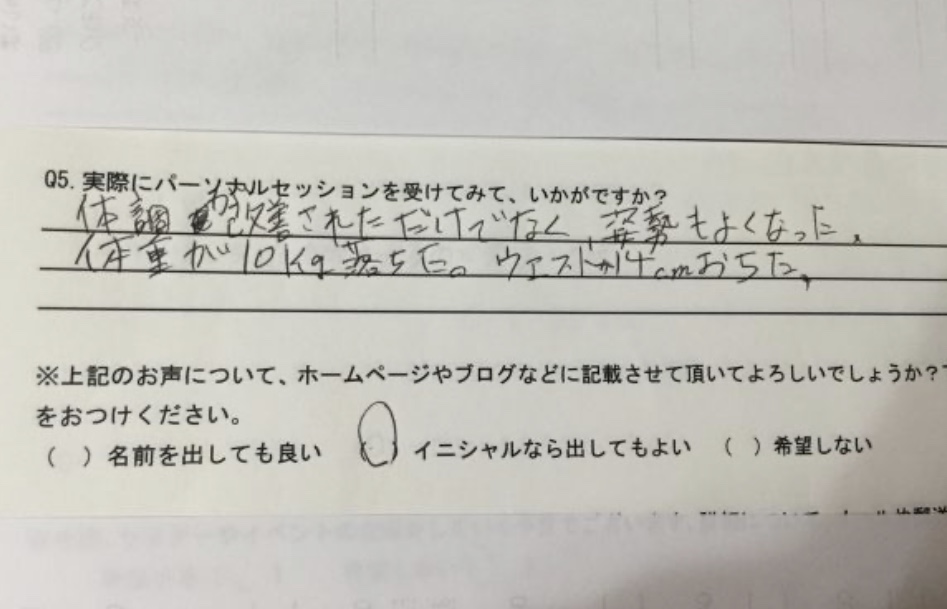 Q5. 実際にパーソナルセッションを受けてみて、いかがですか？
体調が改善されただけでなく、姿勢もよくなった。
体重が10kg落ちた。ウエストが14cmおちた。
※上記のお声について、ホームページやブログなどに記載させて頂いてよろしいでしょうか？
をおつけください。
（　）名前を出しても良い　（　）イニシャルなら出してもよい　（　）希望しない